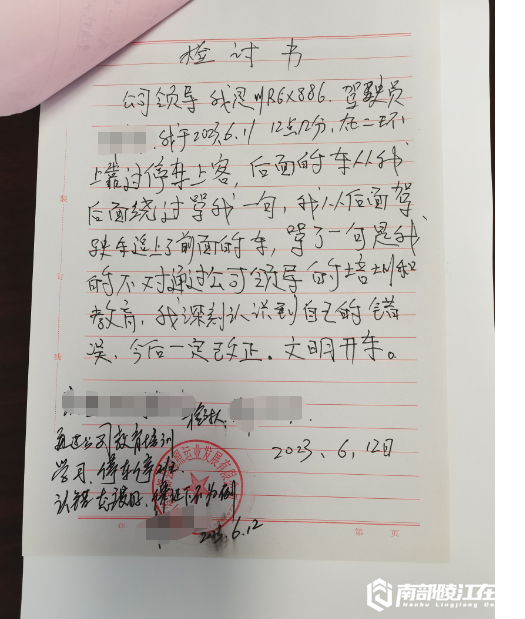 检讨书
公司领导 我是川R6X886. 驾驶员
我于2023.6.11 12点12分, 在二环
上靠过停车上客, 后面的车从我
后面绕过骂我一句, 我从后面驾
驶车追上了前面的车, 骂了一句是我
的不对通过公司领导的培训和
教育, 我深刻认识到自己的错
误, 今后一定改正. 文明开车。
检讨人
2023, 6, 12日
通过公司教育培训
学习, 停车停班
认错态度好, 保证下不为例
2023.6.12
运业发展有限
第 页
南部陵江在
Nanbu Lingjiang On